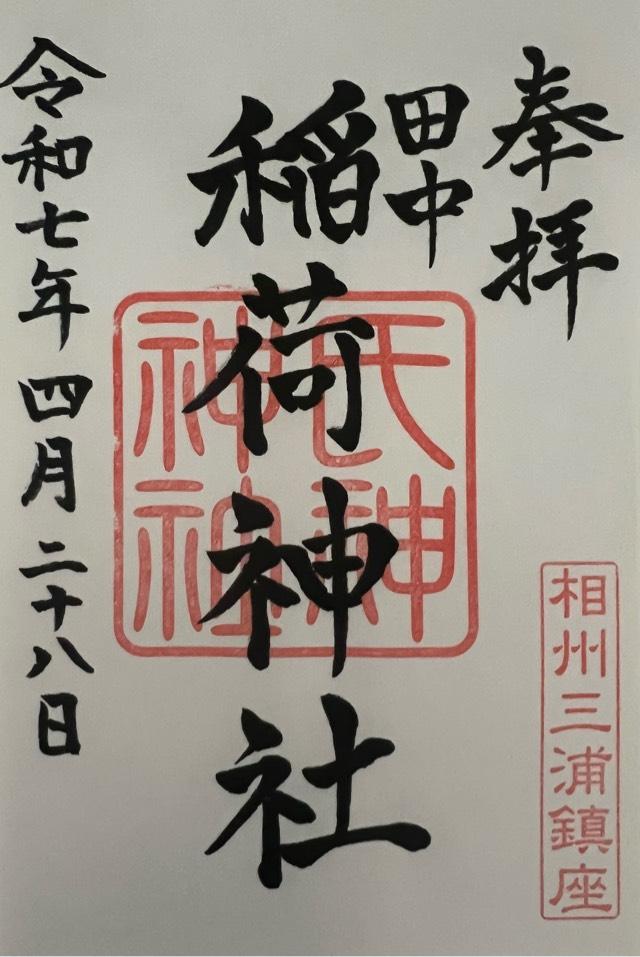 奉拝
田中
稲荷神社
令和七年四月二十八日
氏神
神社
相州三浦鎮座